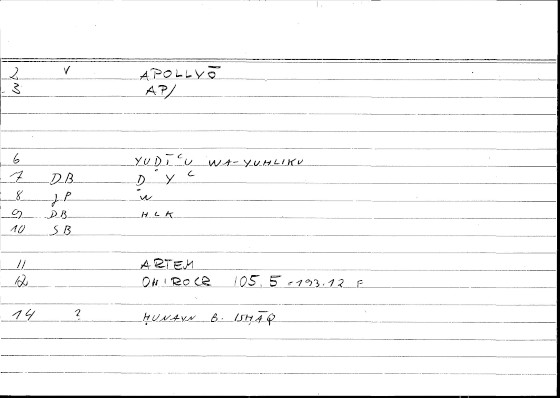 2 V APOLLYŌ
3 AP/
6 YUḌĪʿU WA-YUHLIKU
7 DB Ḍ Y ʿ
8 JP W
9 DB HLK
10 SB
11 ARTEM
12 ONIROCR 105.5 = 193.12 F
14 ? ḤUNAYN B. ISḤĀQ